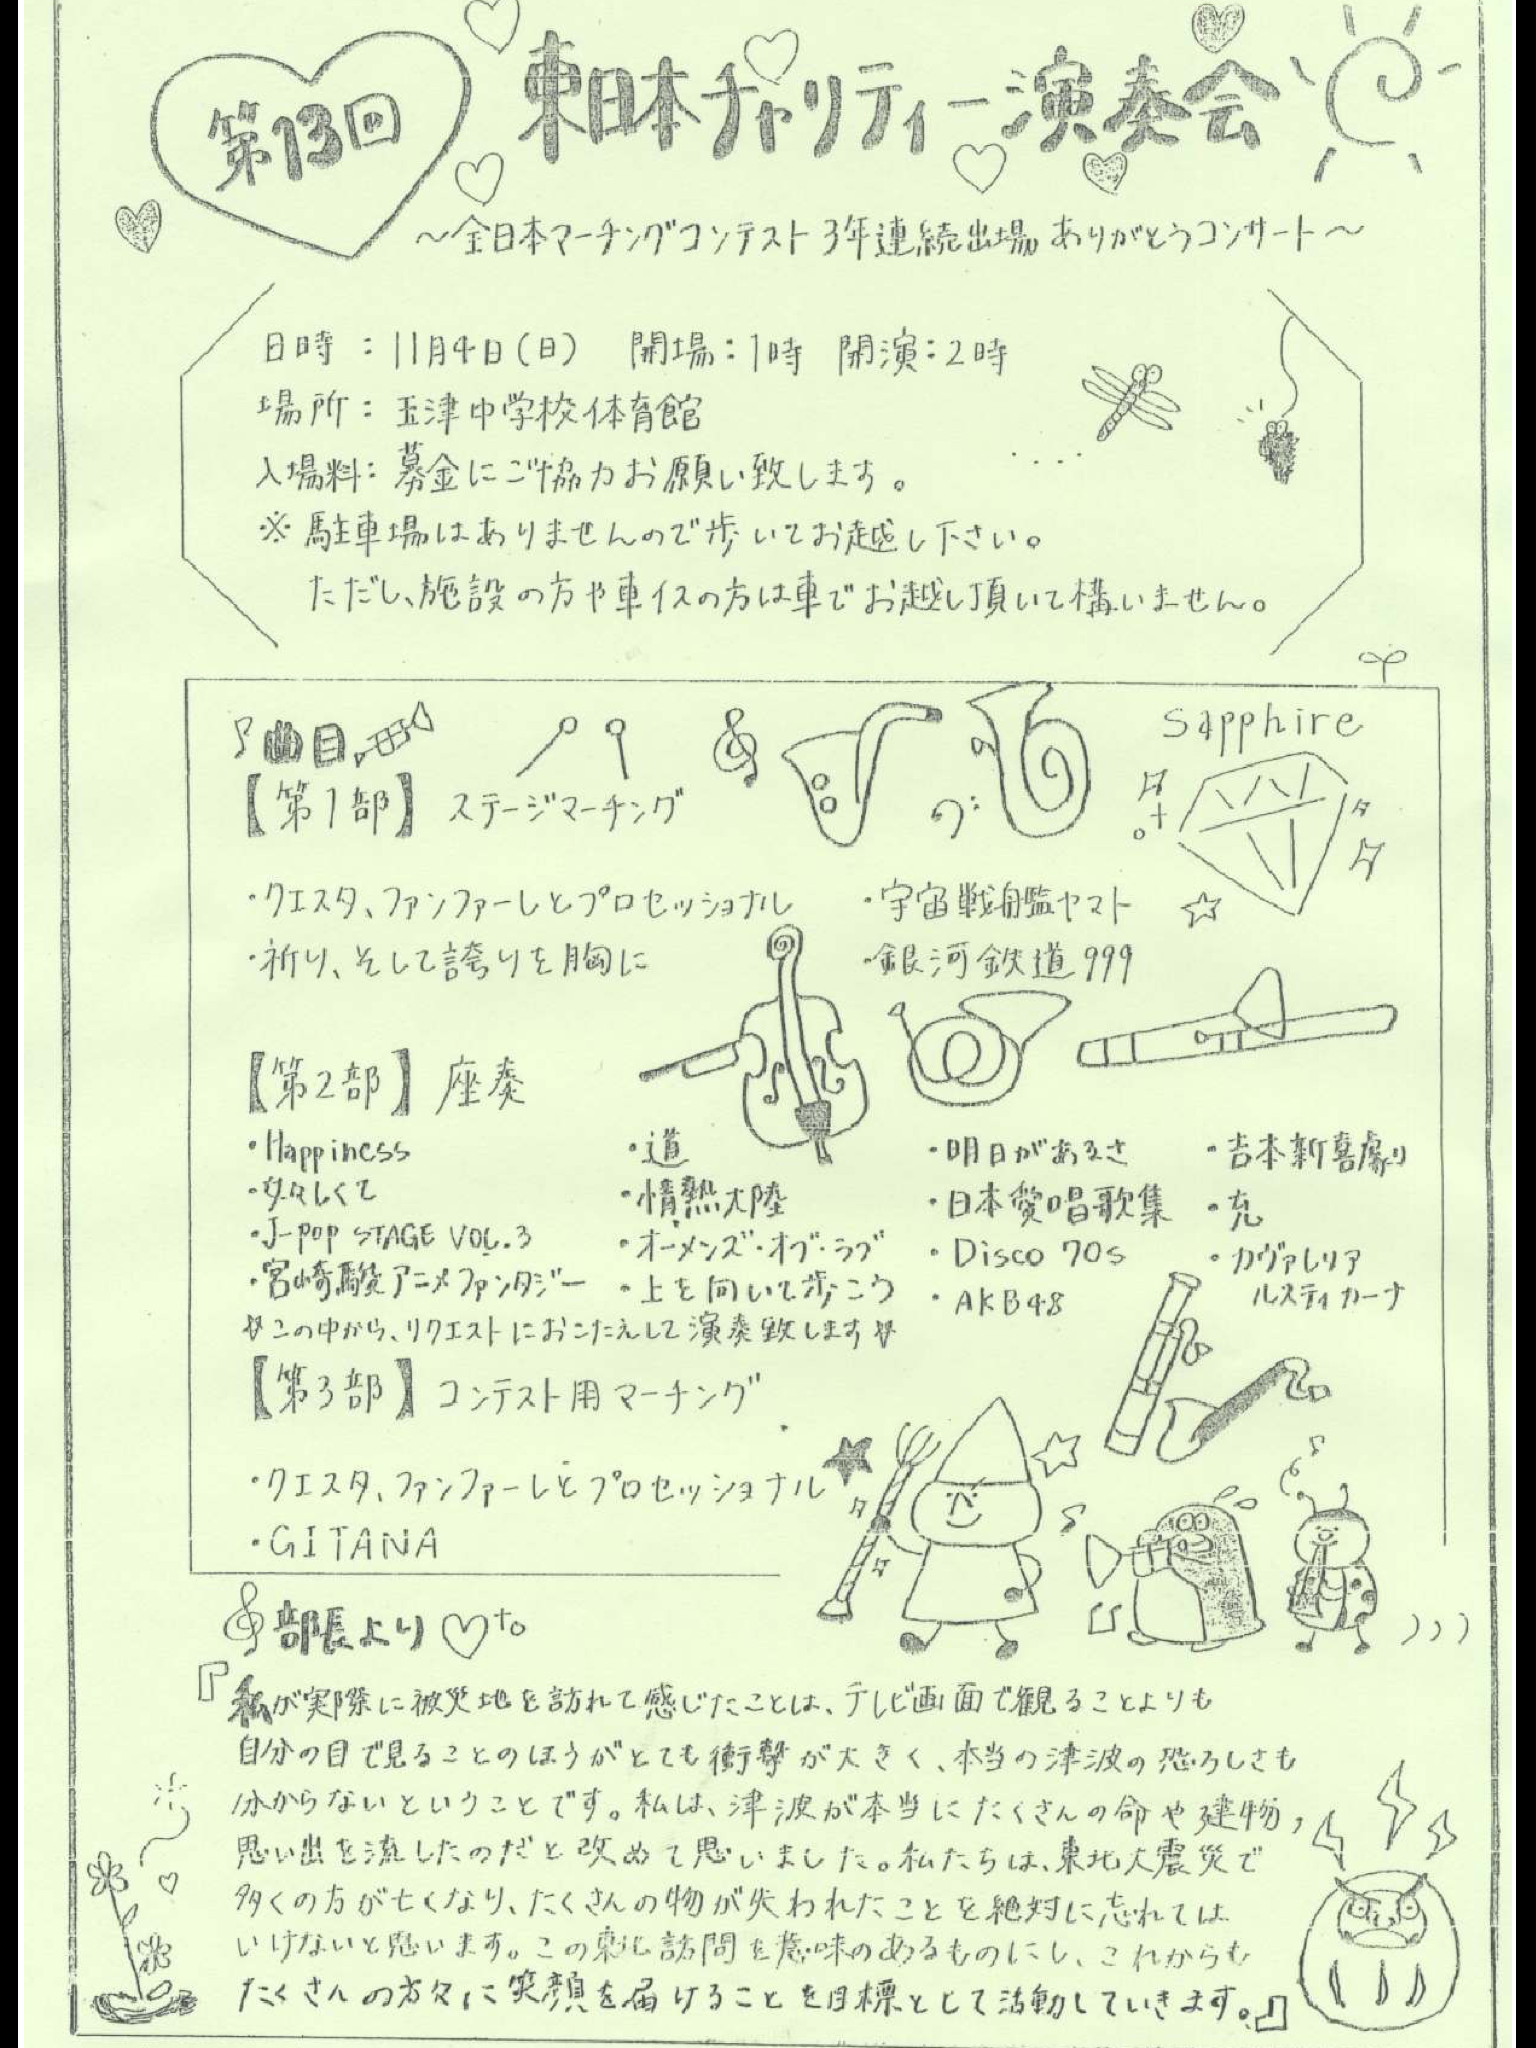 第13回 東日本チャリティー演奏会
～全日本マーチングコンテスト3年連続出場ありがとうコンサート～
日時：11月4日(日) 開場：1時 開演：2時
場所：玉津中学校体育館
入場料：募金にご協力お願い致します。
※駐車場はありませんので歩いてお越し下さい。
ただし、施設の方や車イスの方は車でお越し頂いて構いません。
曲目
Sapphire
【第1部】ステージマーチング
・クエスタ、ファンファーレとプロセッショナル ・宇宙戦艦ヤマト
・祈り、そして誇りを胸に ・銀河鉄道999
【第2部】座奏
・Happiness ・道 ・明日があるさ ・吉本新喜劇
・女々しくて ・情熱大陸 ・日本愛唱歌集 ・充
・J-POP STAGE VOL.3 ・オーメンズ・オブ・ラブ ・Disco 70s ・カヴァレリア
ルスティカーナ
・宮崎駿アニメファンタジー ・上を向いて歩こう ・AKB48
☆この中から、リクエストにおこたえして演奏致します☆
【第3部】コンテスト用マーチング
・クエスタ、ファンファーレとプロセッショナル
・GITANA
部長より♡
『私が実際に被災地を訪れて感じたことは、テレビ画面で観ることよりも
自分の目で見ることのほうがとても衝撃が大きく、本当の津波の恐ろしさも
分からないということです。私は、津波が本当にたくさんの命や建物、
思い出を流したのだと改めて思いました。私たちは、東北大震災で
多くの方が亡くなり、たくさんの物が失われたことを絶対に忘れては
いけないと思います。この東北訪問を意味のあるものにし、これからも
たくさんの方々に笑顔を届けることを目標として活動していきます。』